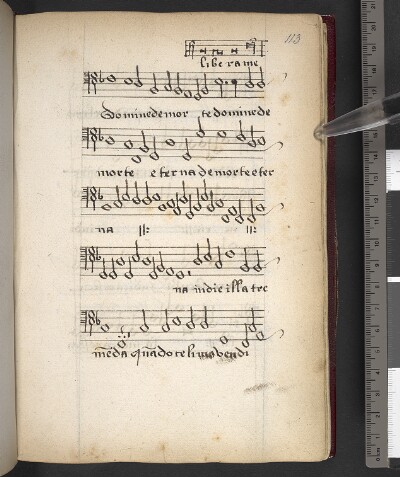 113
libera me
domine de mor te domine de
morte eterna de morte eter
na ||: ||:
na in die illa tre
mēda quādo celi movendi